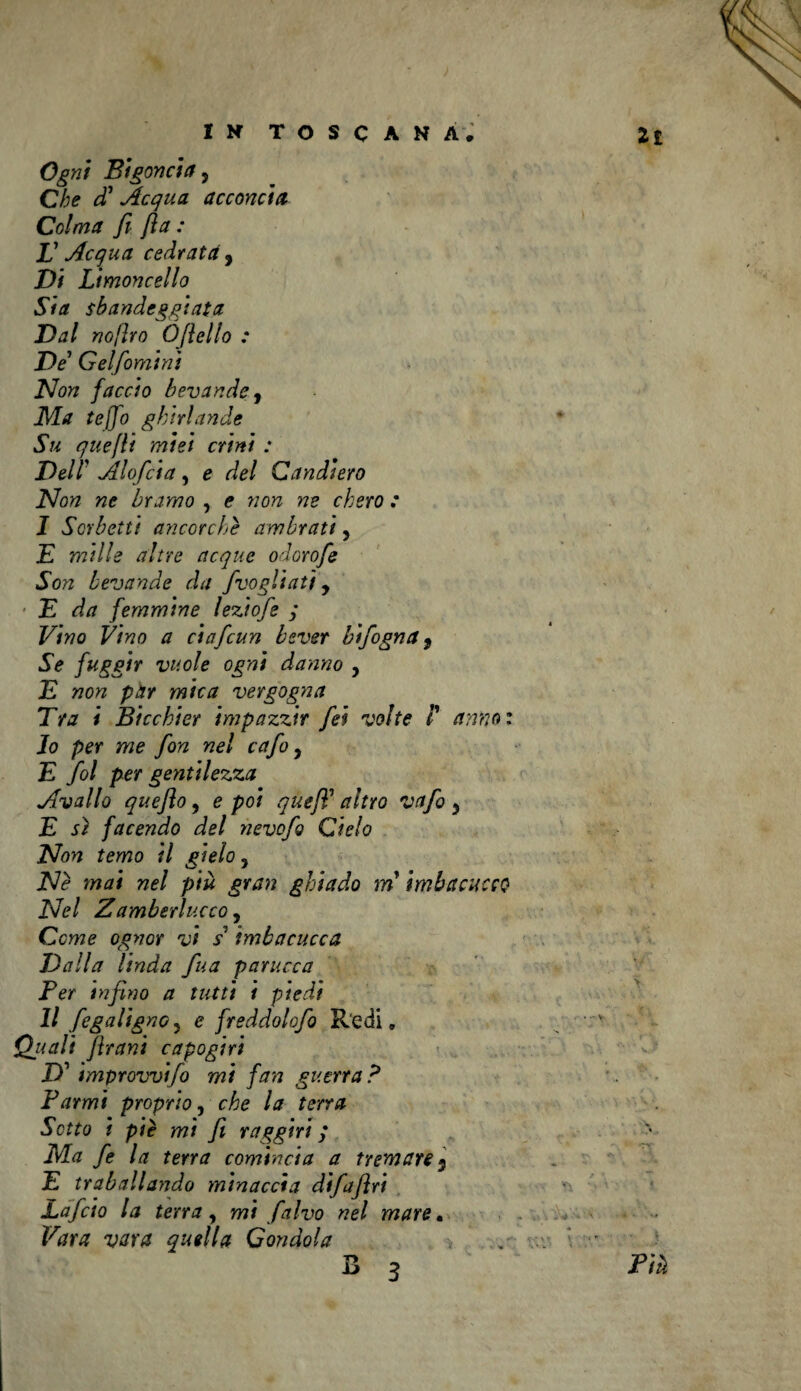 IN TOSCANA. 21
Ogni Bigoncia,
Che d' Acqua acconcia
Colma ſi ſia:
L' Acqua cedrata,
Di Limoncello
Sia sbandeggiata
Dal noſtro Oſtello:
De' Gelſomini
Non faccio bevande,
Ma teſſo ghirlande
Su queſti miei crini:
Dell' Aloſcia, e del Candiero
Non ne bramo, e non ne chero:
I Sorbetti ancorchè ambrati,
E mille altre acque odoroſe
Son bevande da ſvogliati,
E da femmine lezioſe;
Vino Vino a ciaſcun bever biſogna,
Se fuggir vuole ogni danno,
E non par mica vergogna
Tra i Bicchier impazzir ſei volte l' anno:
Io per me ſon nel caſo,
E ſol per gentilezza
Avallo queſto, e poi queſt' altro vaſo,
E sì facendo del nevoſo Cielo
Non temo il gielo,
Nè mai nel più gran ghiado m' imbacucco
Nel Zamberlucco,
Come ognor vi s' imbacucca
Dalla linda ſua parucca
Per inſino a tutti i piedi
Il ſegaligno, e freddoloſo Redi.
Quali ſtrani capogiri
D' improvviſo mi fan guerra?
Parmi proprio, che la terra
Sotto i piè mi ſi raggiri;
Ma ſe la terra comincia a tremare,
E traballando minaccia diſaſtri
Laſcio la terra, mi ſalvo nel mare.
Vara vara quella Gondola
B 3 Più